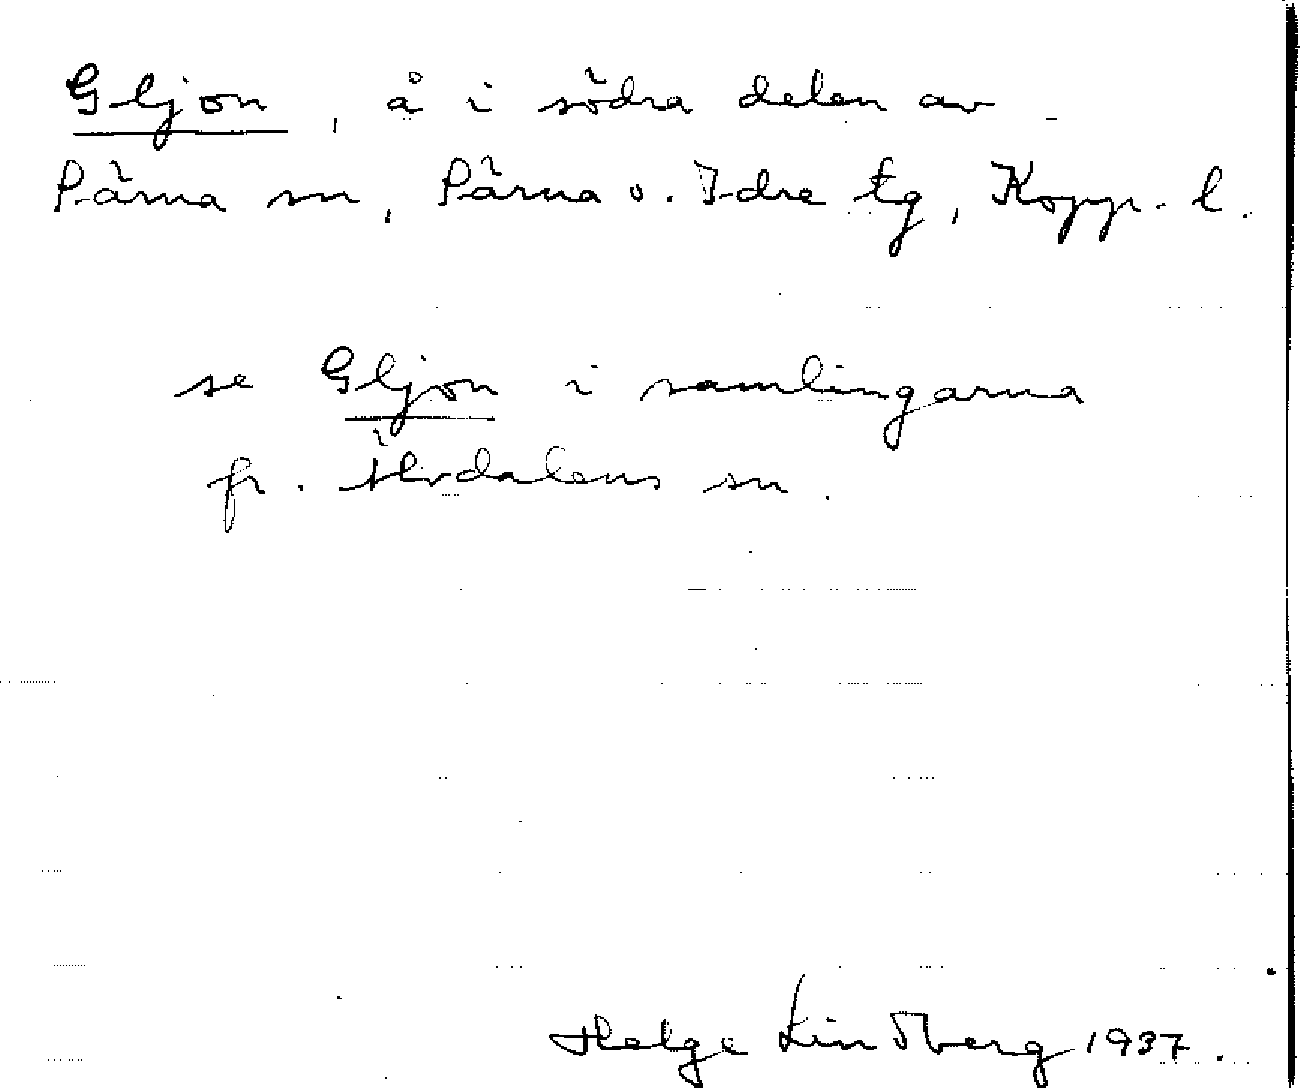 Gljon, å i södra delen av
Särna sn, Särna o. Idre tg, Kopp. l.
se Gljon i samlingarna
fr. Älvdalens sn.
Helge Lindberg 1937.